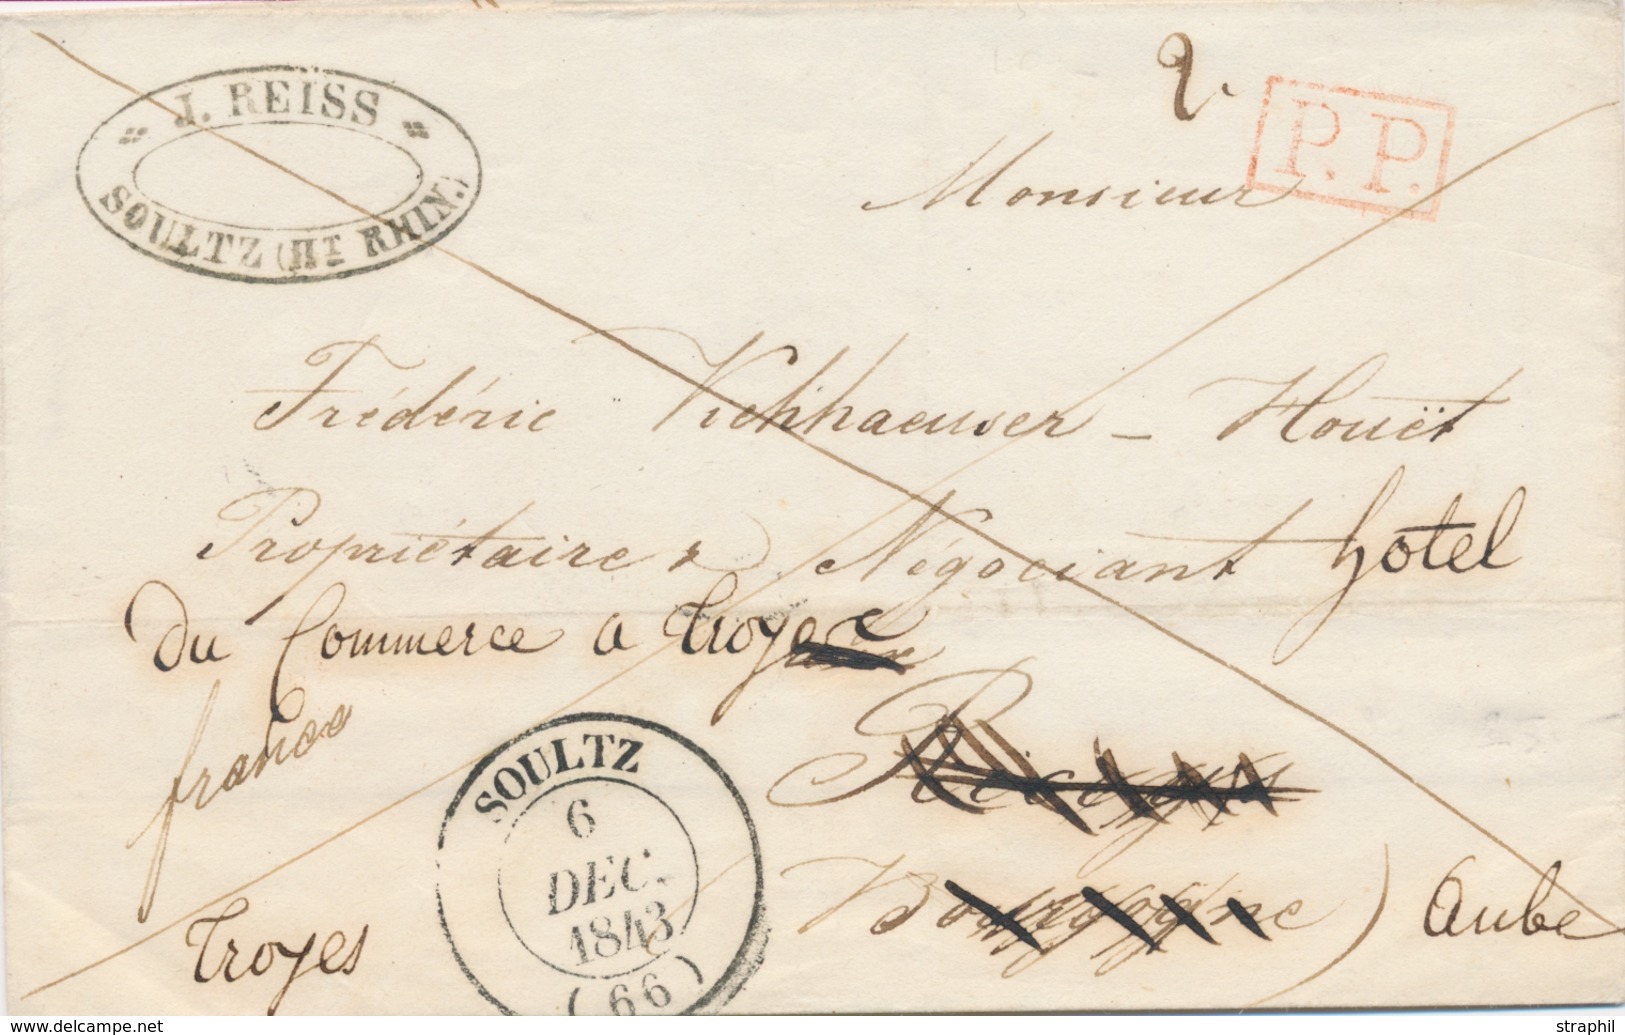 J. REISS
SOULTZ (HT RHIN.)
2.
P.P.
Monsieur
Frédéric Viehhaeuser - Houët
Propriétaire & Négociant hotel
Du Commerce a Troyes
france
SOULTZ
6
DEC.
1843
(66)
Bourgogne) Aube
Troyes
www.delcampe.net
straphil